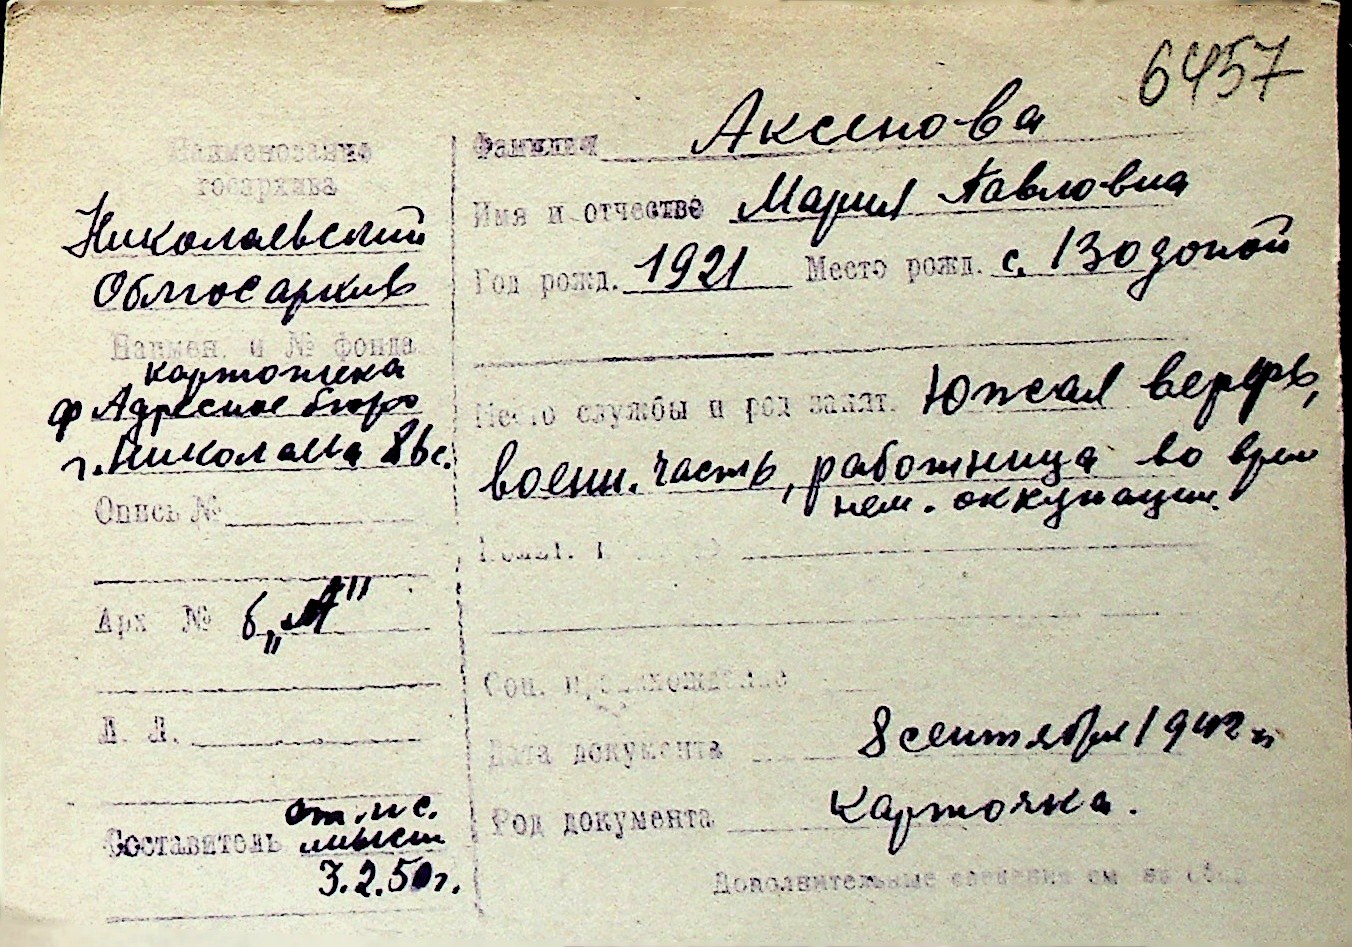 6457
Наименование
госархива
Николаевский
Облгосархив
Наимен. и № фонда
картотека
ф Адресное бюро
г. Николаева 86с.
Опись №
Арх №
б „А"
Л. Л.
Составитель
3.2.50г.
Фамилия Аксенова
Имя и отчество Мария Павловна
Год рожд. 1921 Место рожд. с.
Место службы и род занят. Южная верфь,
воен. часть, работница во врем
нем. оккупации.
Соц. происхождение
Дата документа 8 сентября 1942 г
Род документа Карточка.
Дополнительные сведения см на обор